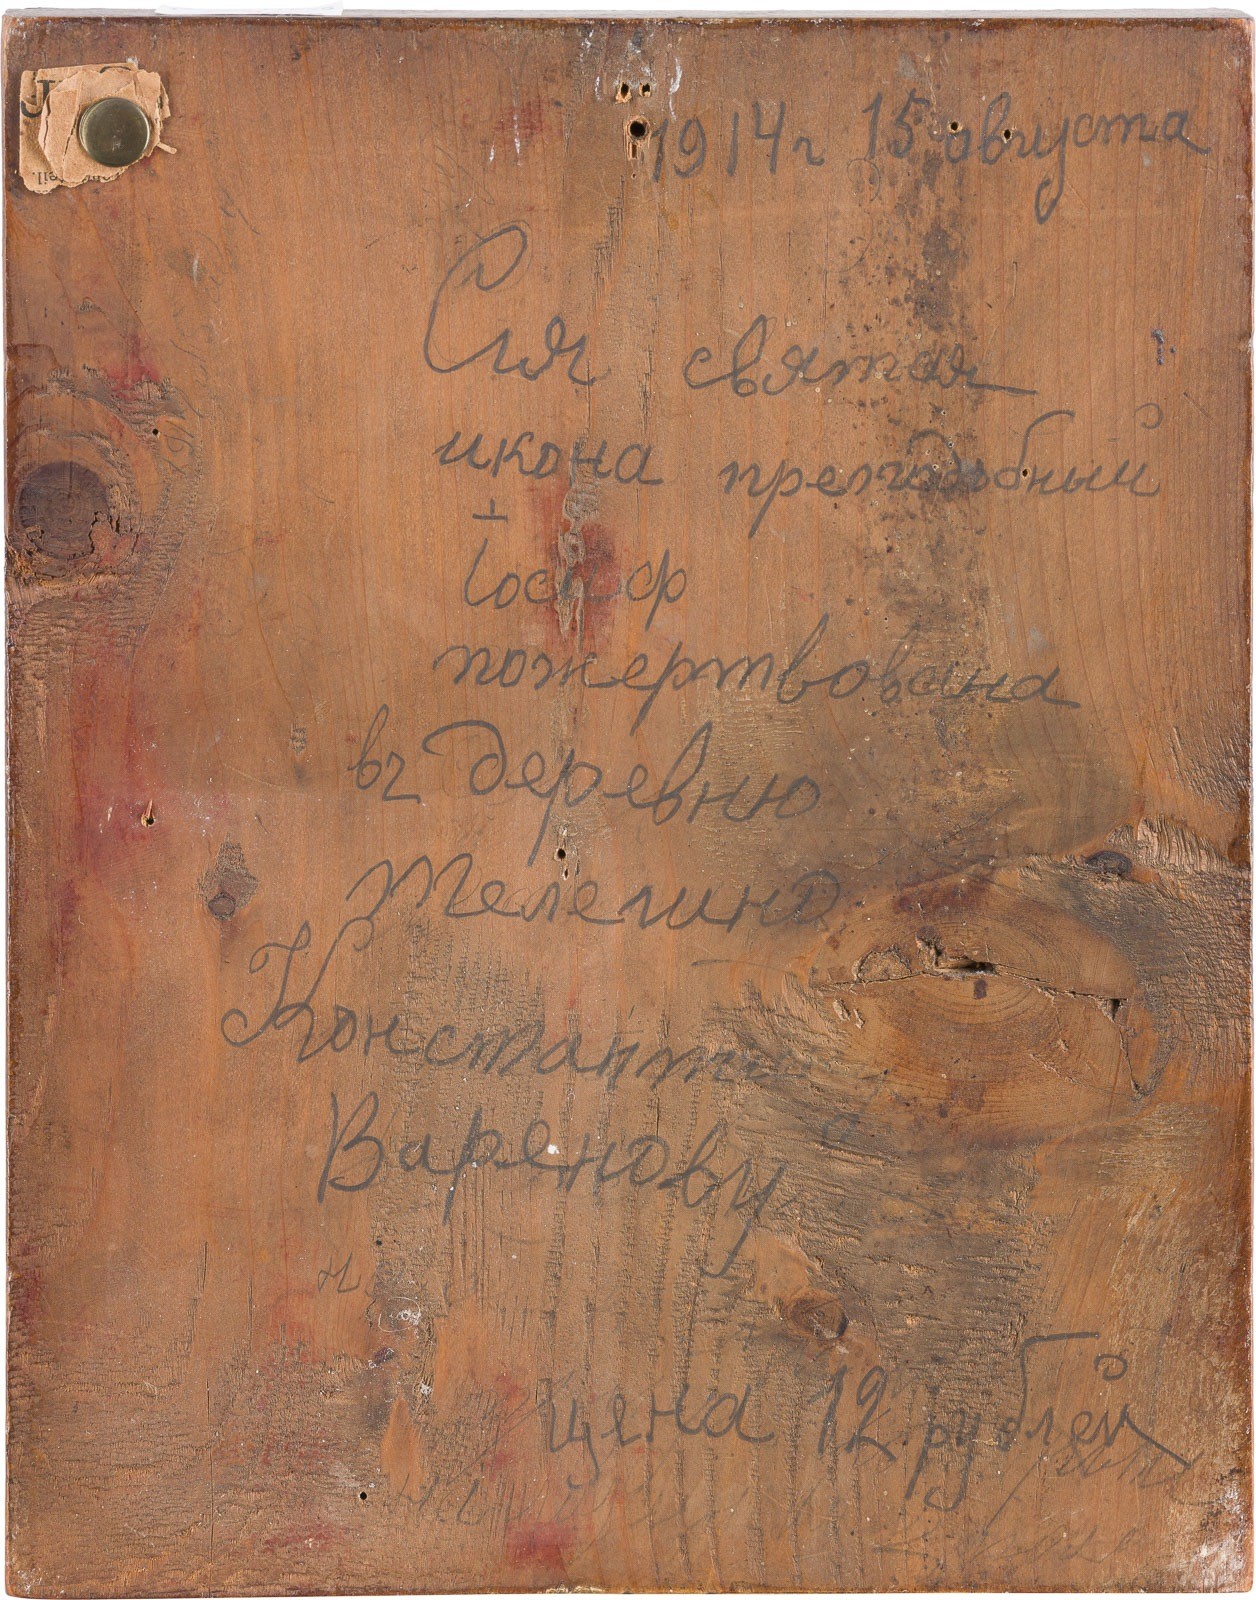 1914 г 15 августа
Сия святая
икона преподобный
Іосиф
пожертвована
въ деревню
Телегино
Констант
Варенову
и
цена 12 рублей